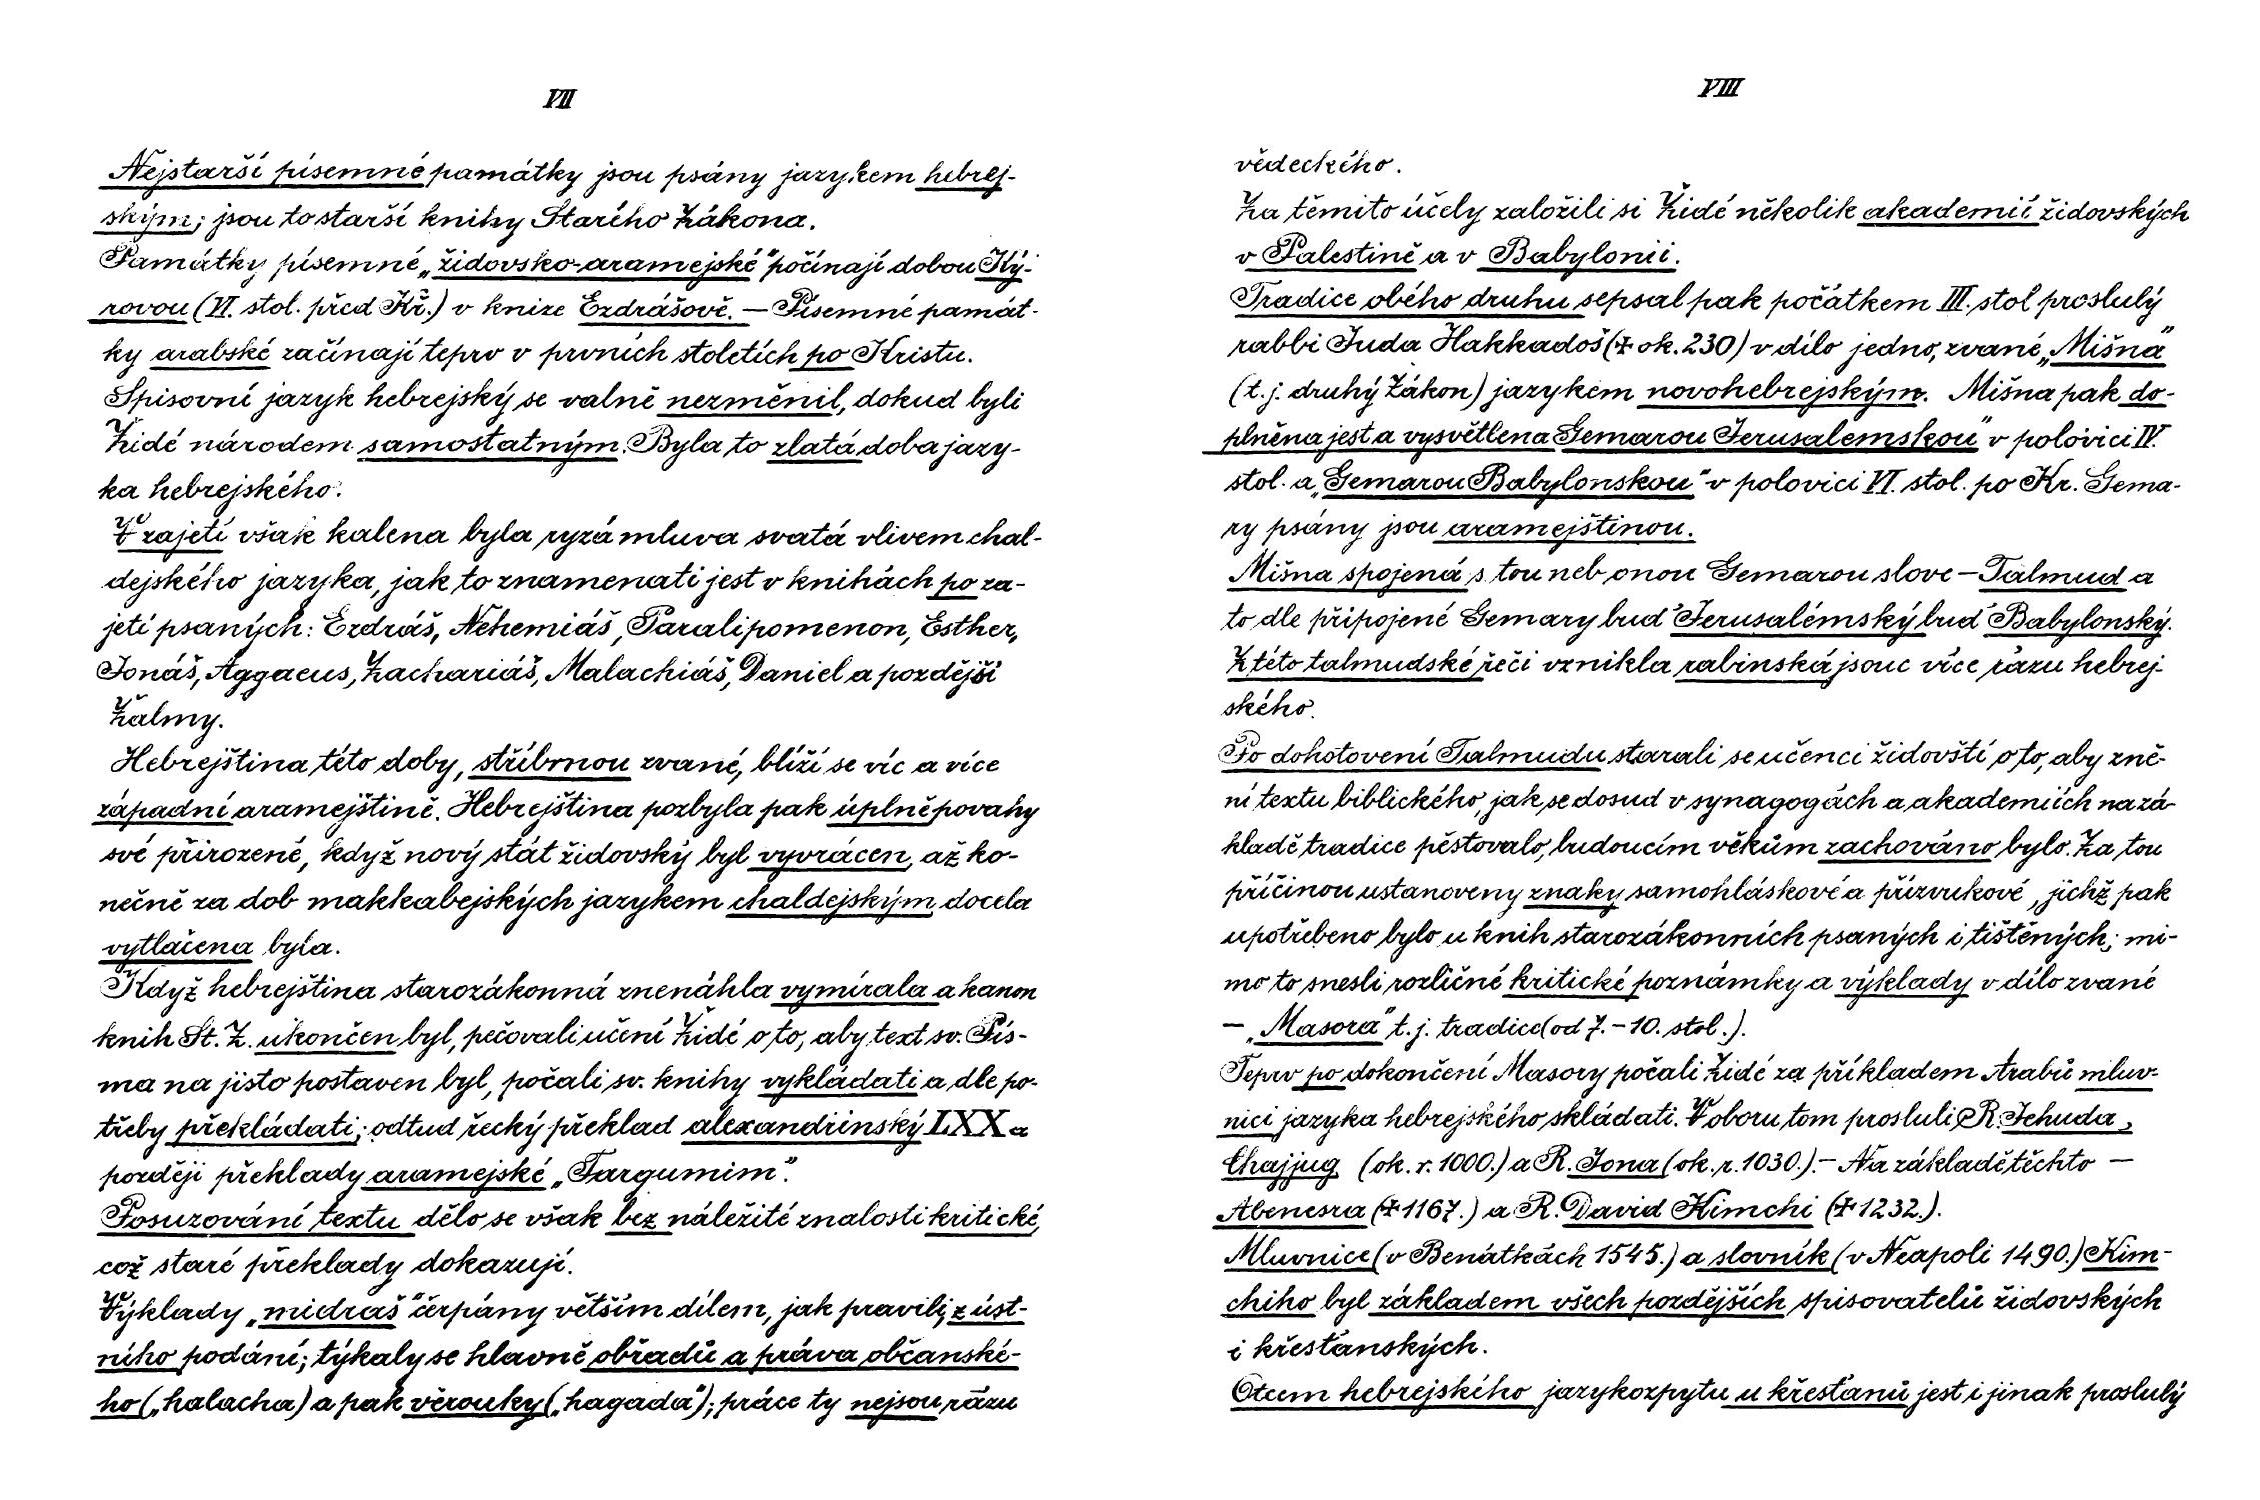 VII
Nejstarší písemné památky jsou psány jazykem hebrej-
ským; jsou to starší knihy Starého Zákona.
Památky písemné „židovsko-aramejské" počínají dobou Ký-
rovou (VI. stol. před Kr.) v knize Ezdrášově. — Písemné památ-
ky arabské začínají teprv v prvních stoletích po Kristu.
Spisovní jazyk hebrejský se valně nezměnil, dokud byli
Židé národem samostatným. Byla to zlatá doba jazy-
ka hebrejského.
V zajetí však kalena byla ryzá mluva svatá vlivem chal-
dejského jazyka, jak to znamenati jest v knihách po za-
jetí psaných: Ezdráš, Nehemiáš, Paralipomenon, Esther,
Jonáš, Aggaeus, Zachariáš, Malachiáš, Daniel a pozdější
Žalmy.
Hebrejština této doby, stříbrnou zvané, blíží se víc a více
západní aramejštině. Hebrejština pozbyla pak úplně povahy
své přirozené, když nový stát židovský byl vyvrácen, až ko-
nečně za dob makkabejských jazykem chaldejským docela
vytlačena byla.
Když hebrejština starozákonná znenáhla vymírala a kanon
knih St. Z. ukončen byl, pečovali učení Židé o to, aby text sv. Pís-
ma na jisto postaven byl, počali sv. knihy vykládati a dle po-
třeby překládati; odtud řecký překlad alexandrinský LXX a
později překlady aramejské „Targumim".
Posuzování textu dělo se však bez náležité znalosti kritické,
což staré překlady dokazují.
Výklady „midraš" čerpány větším dílem, jak pravili, z úst-
ního podání; týkaly se hlavně obřadů a práva občanské-
ho („halacha) a pak věrouky („hagada"); práce ty nejsou rázu
VIII
vědeckého.
Za těmito účely založili si Židé několik akademií židovských
v Palestině a v Babylonii.
Tradice obého druhu sepsal pak počátkem III. stol proslulý
rabbi Juda Hakkadoš (‡ ok. 230) v dílo jedno, zvané „Mišna"
(t. j. druhý Zákon) jazykem novohebrejským. Mišna pak do-
plněna jest a vysvětlena Gemarou Jerusalemskou" v polovici IV.
stol. a „Gemarou Babylonskou" v polovici VI. stol. po Kr. Gema-
ry psány jsou aramejštinou.
Mišna spojená s tou neb onou Gemarou slove — Talmud a
to dle připojené Gemary buď Jerusalémský buď Babylonský.
Z této talmudské řeči vznikla rabinská jsouc více rázu hebrej-
ského.
Po dohotovení Talmudu starali se učenci židovští o to, aby zně-
ní textu biblického, jak se dosud v synagogách a akademiích na zá-
kladě tradice pěstovalo, budoucím věkům zachováno bylo. Za tou
příčinou ustanoveny znaky samohláskové a přízvukové, jichž pak
upotřebeno bylo u knih starozákonních psaných i tištěných; mi-
mo to snesli rozličné kritické poznámky a výklady v dílo zvané
— „Masora" t. j. tradice (od 7. – 10. stol.).
Teprv po dokončení Masory počali Židé za příkladem Arabů mluv-
nici jazyka hebrejského skládati. V oboru tom prosluli R. Jehuda,
Chajjug (ok. r. 1000.) a R. Jona (ok. r. 1030.). — Na základě těchto —
Abenesra (‡ 1167.) a R. David Kimchi (‡ 1232.).
Mluvnice (v Benátkách 1545.) a slovník (v Neapoli 1490.) Kim-
chiho byl základem všech pozdějších spisovatelů židovských
i křesťanských.
Otcem hebrejského jazykozpytu u křesťanů jest i jinak proslulý